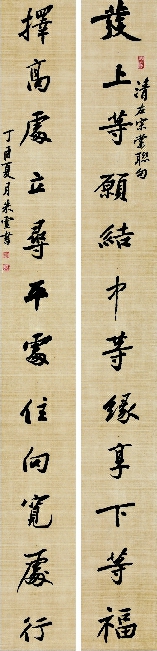 發上等願結中等緣享下等福
清左宗棠聯句
擇高處立尋平處住向寬處行
丁酉夏月朱雲書